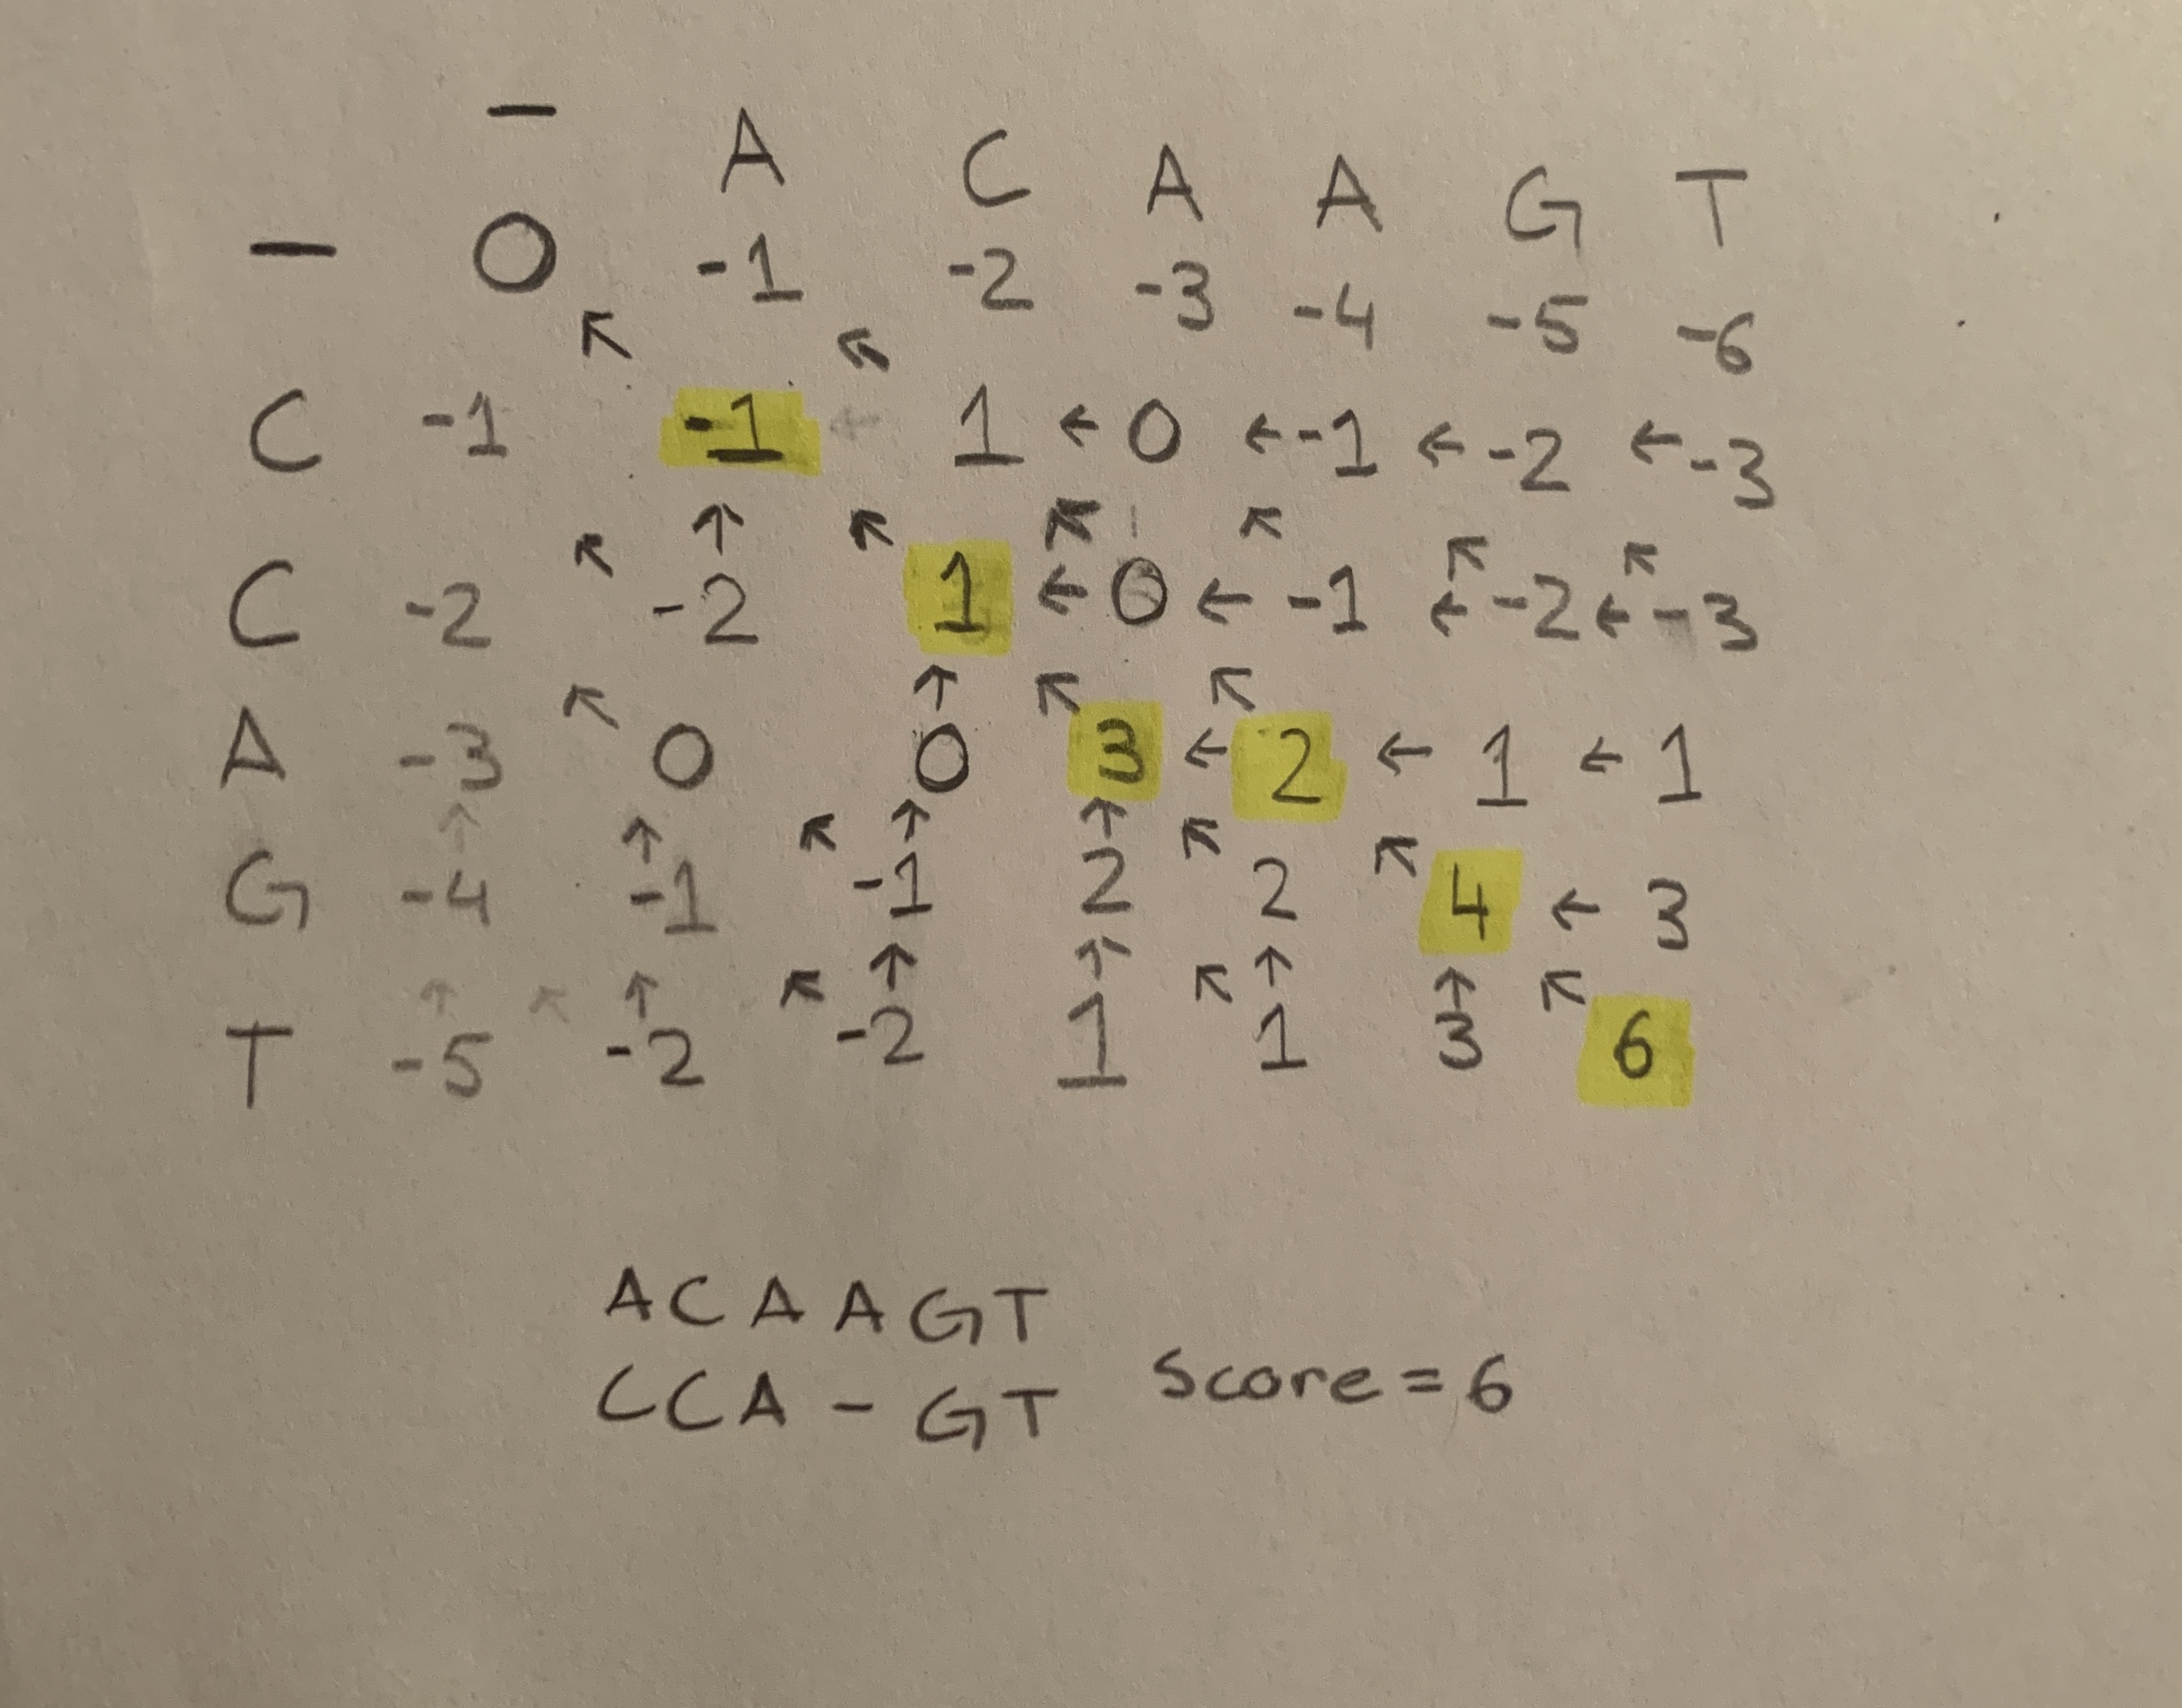 – A C A A G T
– 0 -1 -2 -3 -4 -5 -6
↖ ↖
C -1 -1 ← 1 ← 0 ← -1 ← -2 ← -3
↖ ↑ ↖ ↖ ↖ ↖ ↖
C -2 -2 1 ← 0 ← -1 ← -2 ← -3
↖ ↑ ↖ ↖
A -3 0 0 3 ← 2 ← 1 ← 1
↑ ↑ ↖ ↑ ↑ ↖ ↖
G -4 -1 -1 2 2 4 ← 3
↑ ↖ ↑ ↖ ↑ ↑ ↖ ↑ ↑ ↖
T -5 -2 -2 1 1 3 6
ACAAGT
CCA-GT Score = 6